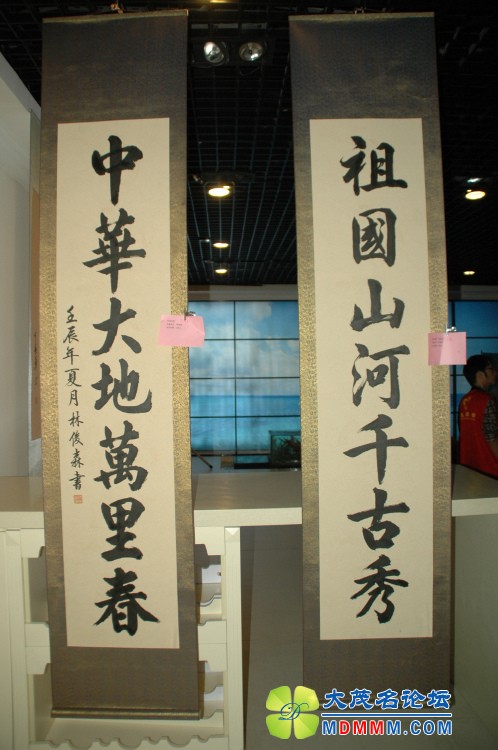 祖國山河千古秀
中華大地萬里春
壬辰年夏月林俊森書
大茂名论坛
MDMMM.COM